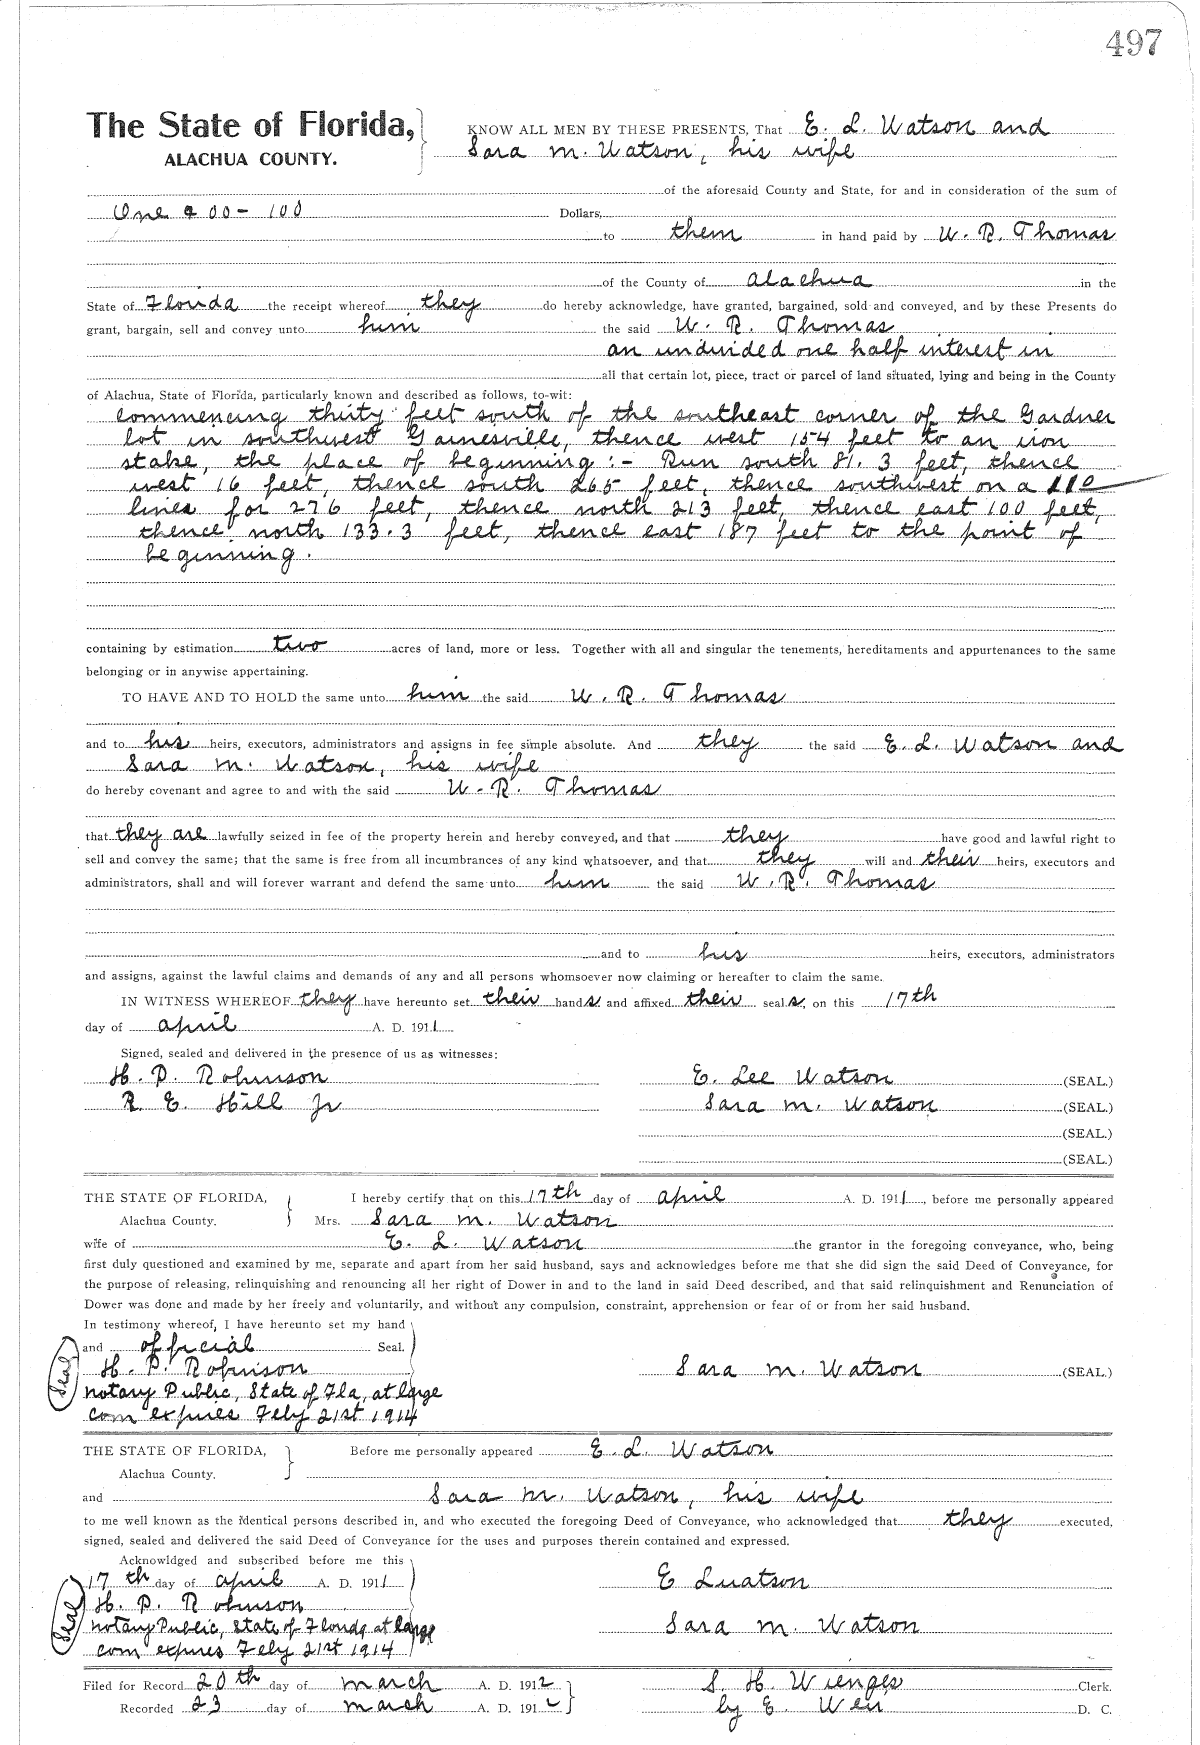 497
The State of Florida,
ALACHUA COUNTY.
KNOW ALL MEN BY THESE PRESENTS, That E. L. Watson and
Sara M. Watson, his wife
of the aforesaid County and State, for and in consideration of the sum of
One & 00-100 Dollars,
to them in hand paid by W. R. Thomas
of the County of Alachua in the
State of Florida the receipt whereof they do hereby acknowledge, have granted, bargained, sold and conveyed, and by these Presents do
grant, bargain, sell and convey unto him the said W. R. Thomas
an undivided one half interest in
all that certain lot, piece, tract or parcel of land situated, lying and being in the County
of Alachua, State of Florida, particularly known and described as follows, to-wit:
Commencing thirty feet south of the southeast corner of the Gardner
lot in southwest Gainesville, thence west 154 feet to an iron
stake, the place of beginning :- Run south 81.3 feet, thence
west 16 feet, thence south 265 feet, thence southwest on a
lines for 276 feet, thence north 213 feet, thence east 100 feet,
thence north 133.3 feet, thence east 187 feet to the point of
beginning.
containing by estimation two acres of land, more or less. Together with all and singular the tenements, hereditaments and appurtenances to the same
belonging or in anywise appertaining.
TO HAVE AND TO HOLD the same unto him the said W. R. Thomas
and to his heirs, executors, administrators and assigns in fee simple absolute. And they the said E. L. Watson and
Sara M. Watson, his wife
do hereby covenant and agree to and with the said W. R. Thomas
that they are lawfully seized in fee of the property herein and hereby conveyed, and that they have good and lawful right to
sell and convey the same; that the same is free from all incumbrances of any kind whatsoever, and that they will and their heirs, executors and
administrators, shall and will forever warrant and defend the same unto him the said W. R. Thomas
and to his heirs, executors, administrators
and assigns, against the lawful claims and demands of any and all persons whomsoever now claiming or hereafter to claim the same.
IN WITNESS WHEREOF they have hereunto set their hands and affixed their seals, on this 17th
day of April A. D. 1911
Signed, sealed and delivered in the presence of us as witnesses:
H. P. Robinson E. Lee Watson (SEAL.)
R. E. Hill Jr Sara M. Watson (SEAL.)
(SEAL.)
(SEAL.)
THE STATE OF FLORIDA, I hereby certify that on this 17th day of April A. D. 1911, before me personally appeared
Alachua County. Mrs. Sara M. Watson
wife of E. L. Watson the grantor in the foregoing conveyance, who, being
first duly questioned and examined by me, separate and apart from her said husband, says and acknowledges before me that she did sign the said Deed of Conveyance, for
the purpose of releasing, relinquishing and renouncing all her right of Dower in and to the land in said Deed described, and that said relinquishment and Renunciation of
Dower was done and made by her freely and voluntarily, and without any compulsion, constraint, apprehension or fear of or from her said husband.
In testimony whereof, I have hereunto set my hand
and official Seal.
(Seal) H. P. Robinson Sara M. Watson (SEAL)
Notary Public, State of Fla, at large
Com expires Feby 21st 1914
THE STATE OF FLORIDA, Before me personally appeared E. L. Watson
Alachua County.
and Sara M. Watson, his wife
to me well known as the identical persons described in, and who executed the foregoing Deed of Conveyance, who acknowledged that they executed,
signed, sealed and delivered the said Deed of Conveyance for the uses and purposes therein contained and expressed.
Acknowldged and subscribed before me this
17th day of April A. D. 1911 E Lwatson
(Seal) H. P. Robinson
Notary Public, State of Florida at large Sara M. Watson
Com expires Feby 21st 1914
Filed for Record 20th day of March A. D. 1912 S. H. Wienges Clerk.
Recorded 23 day of March A. D. 1912 by E. Weir D. C.